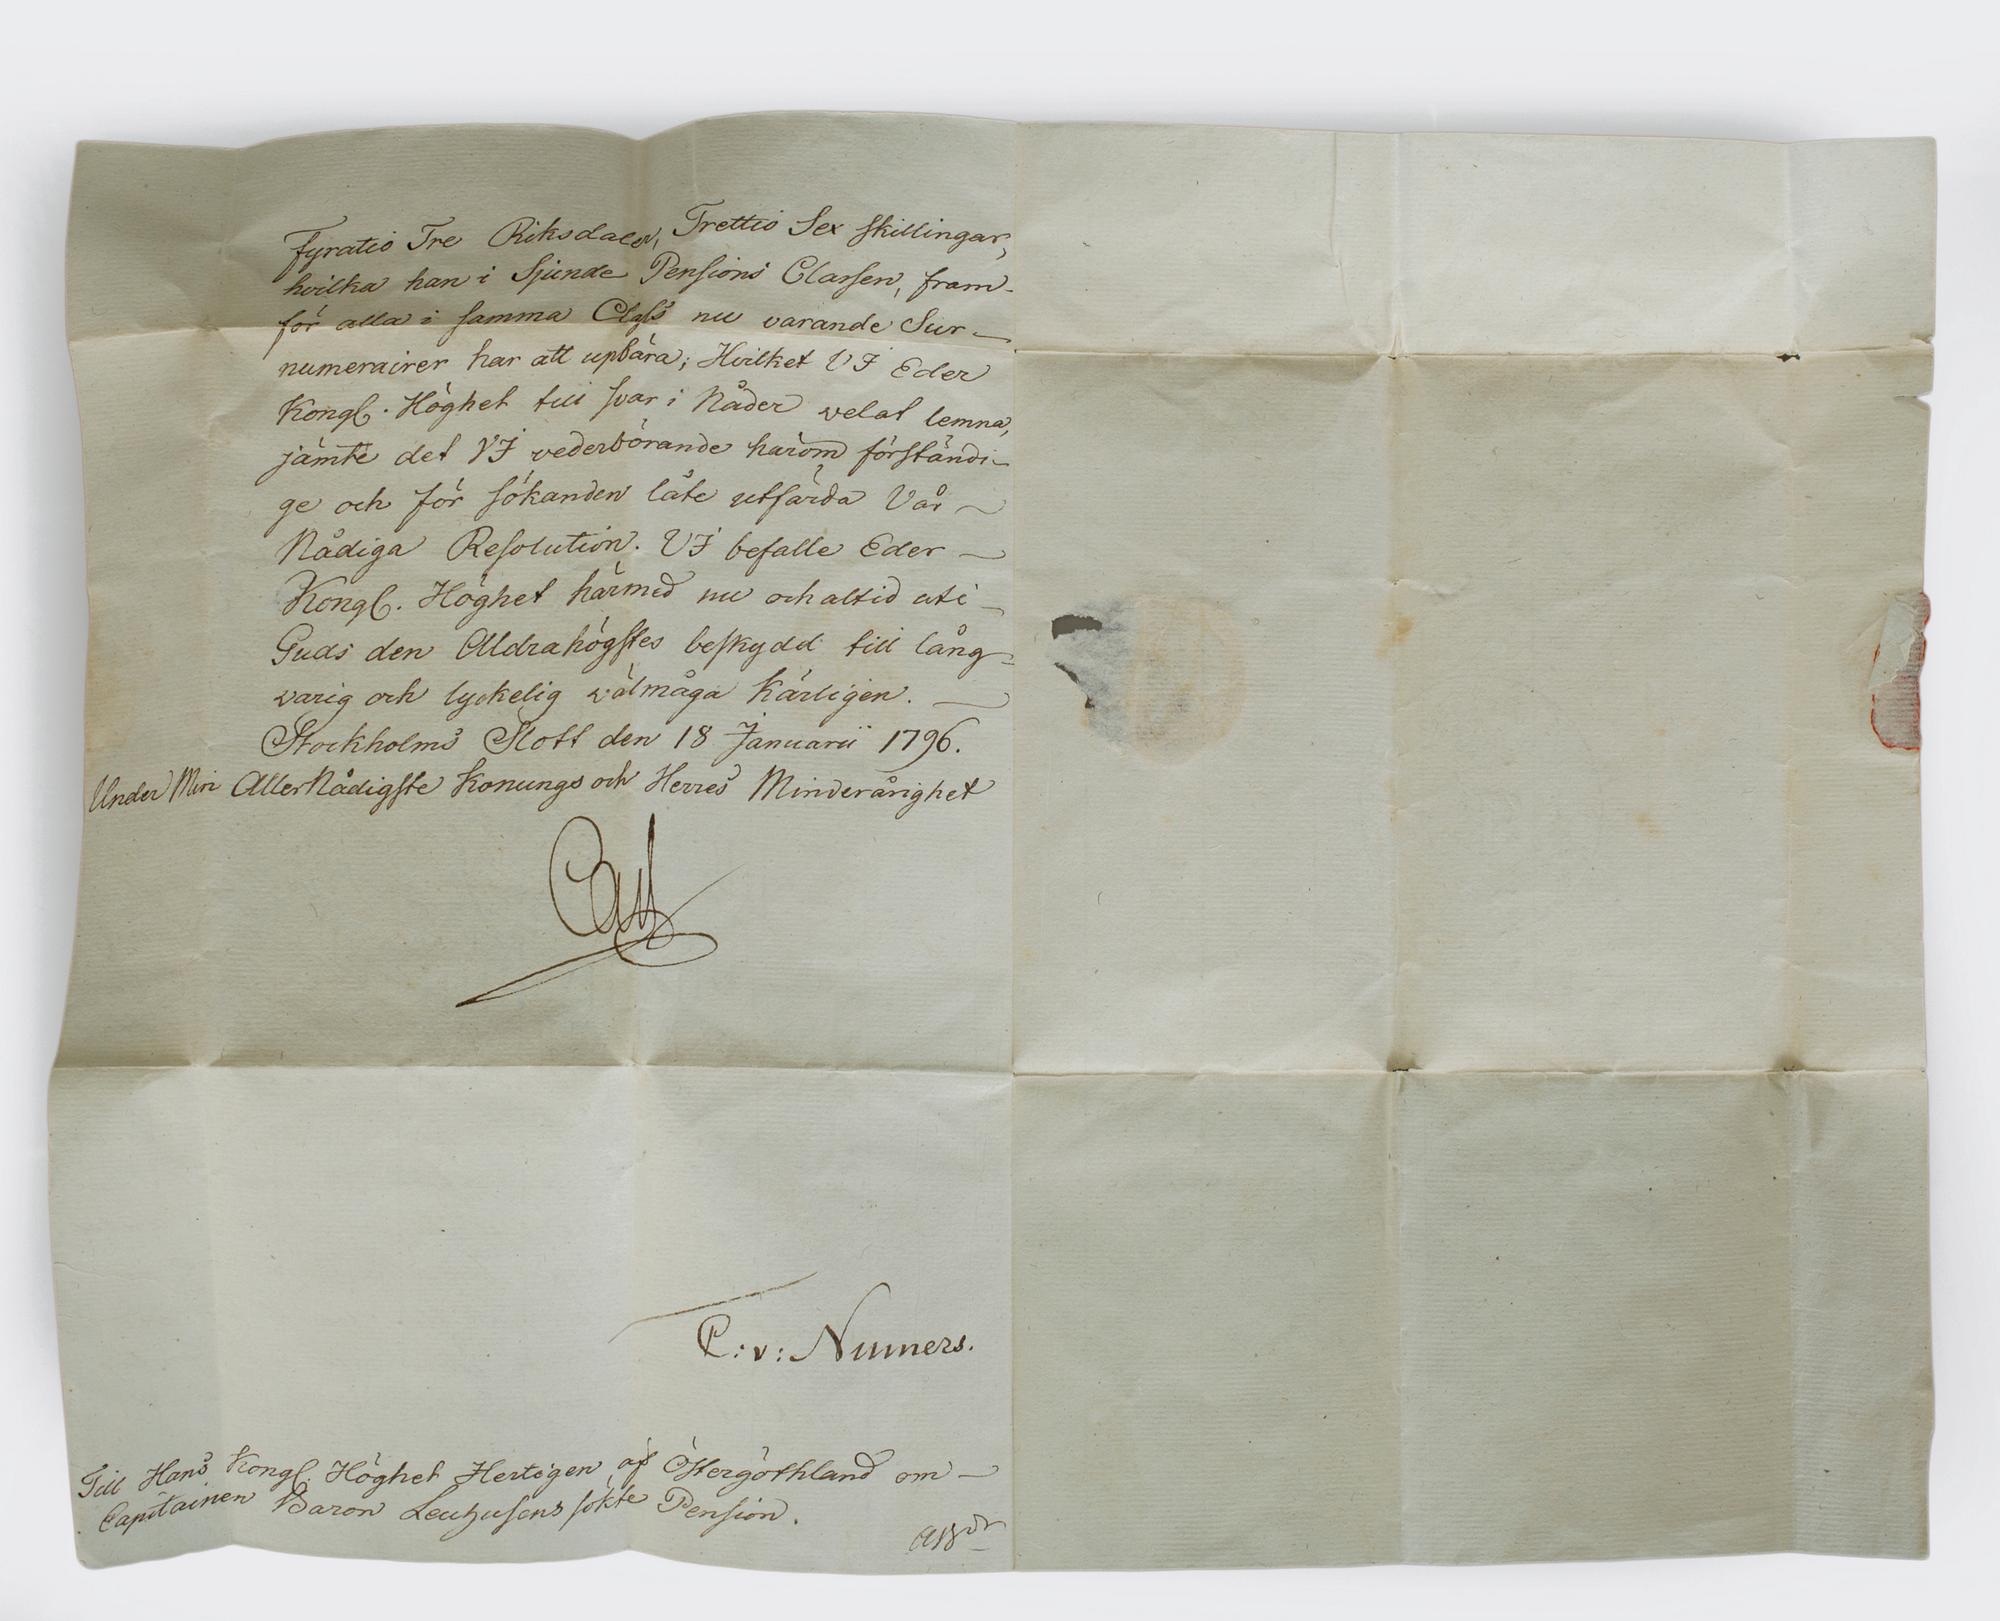 Fyratio Tre Riksdaler, Trettio Sex skillingar,
hvilka han i Sjunde Pensions Classen, fram-
för alla i samma Class nu varande Sur-
numerairer har att upbära; Hvilket VJ Eder
Kongl. Höghet till svar i Nåder velat lemna,
jämte det VJ vederbörande härom förständi-
ge och för sökanden låte utfärda Vår
Nådiga Resolution. VJ befalle Eder
Kongl. Höghet härmed nu och altid uti
Guds den Aldrahögstes beskydd till lång-
varig och lyckelig välmåga kärligen.
Stockholms Slott den 18 Januarii 1796.
Under Min AllerNådigste Konungs och Herres Minderårighet
Carl
C: v: Numers.
Till Hans Kongl. Höghet Hertigen af Östergöthland om
Capitainen Baron Leuhusens sökte Pension.